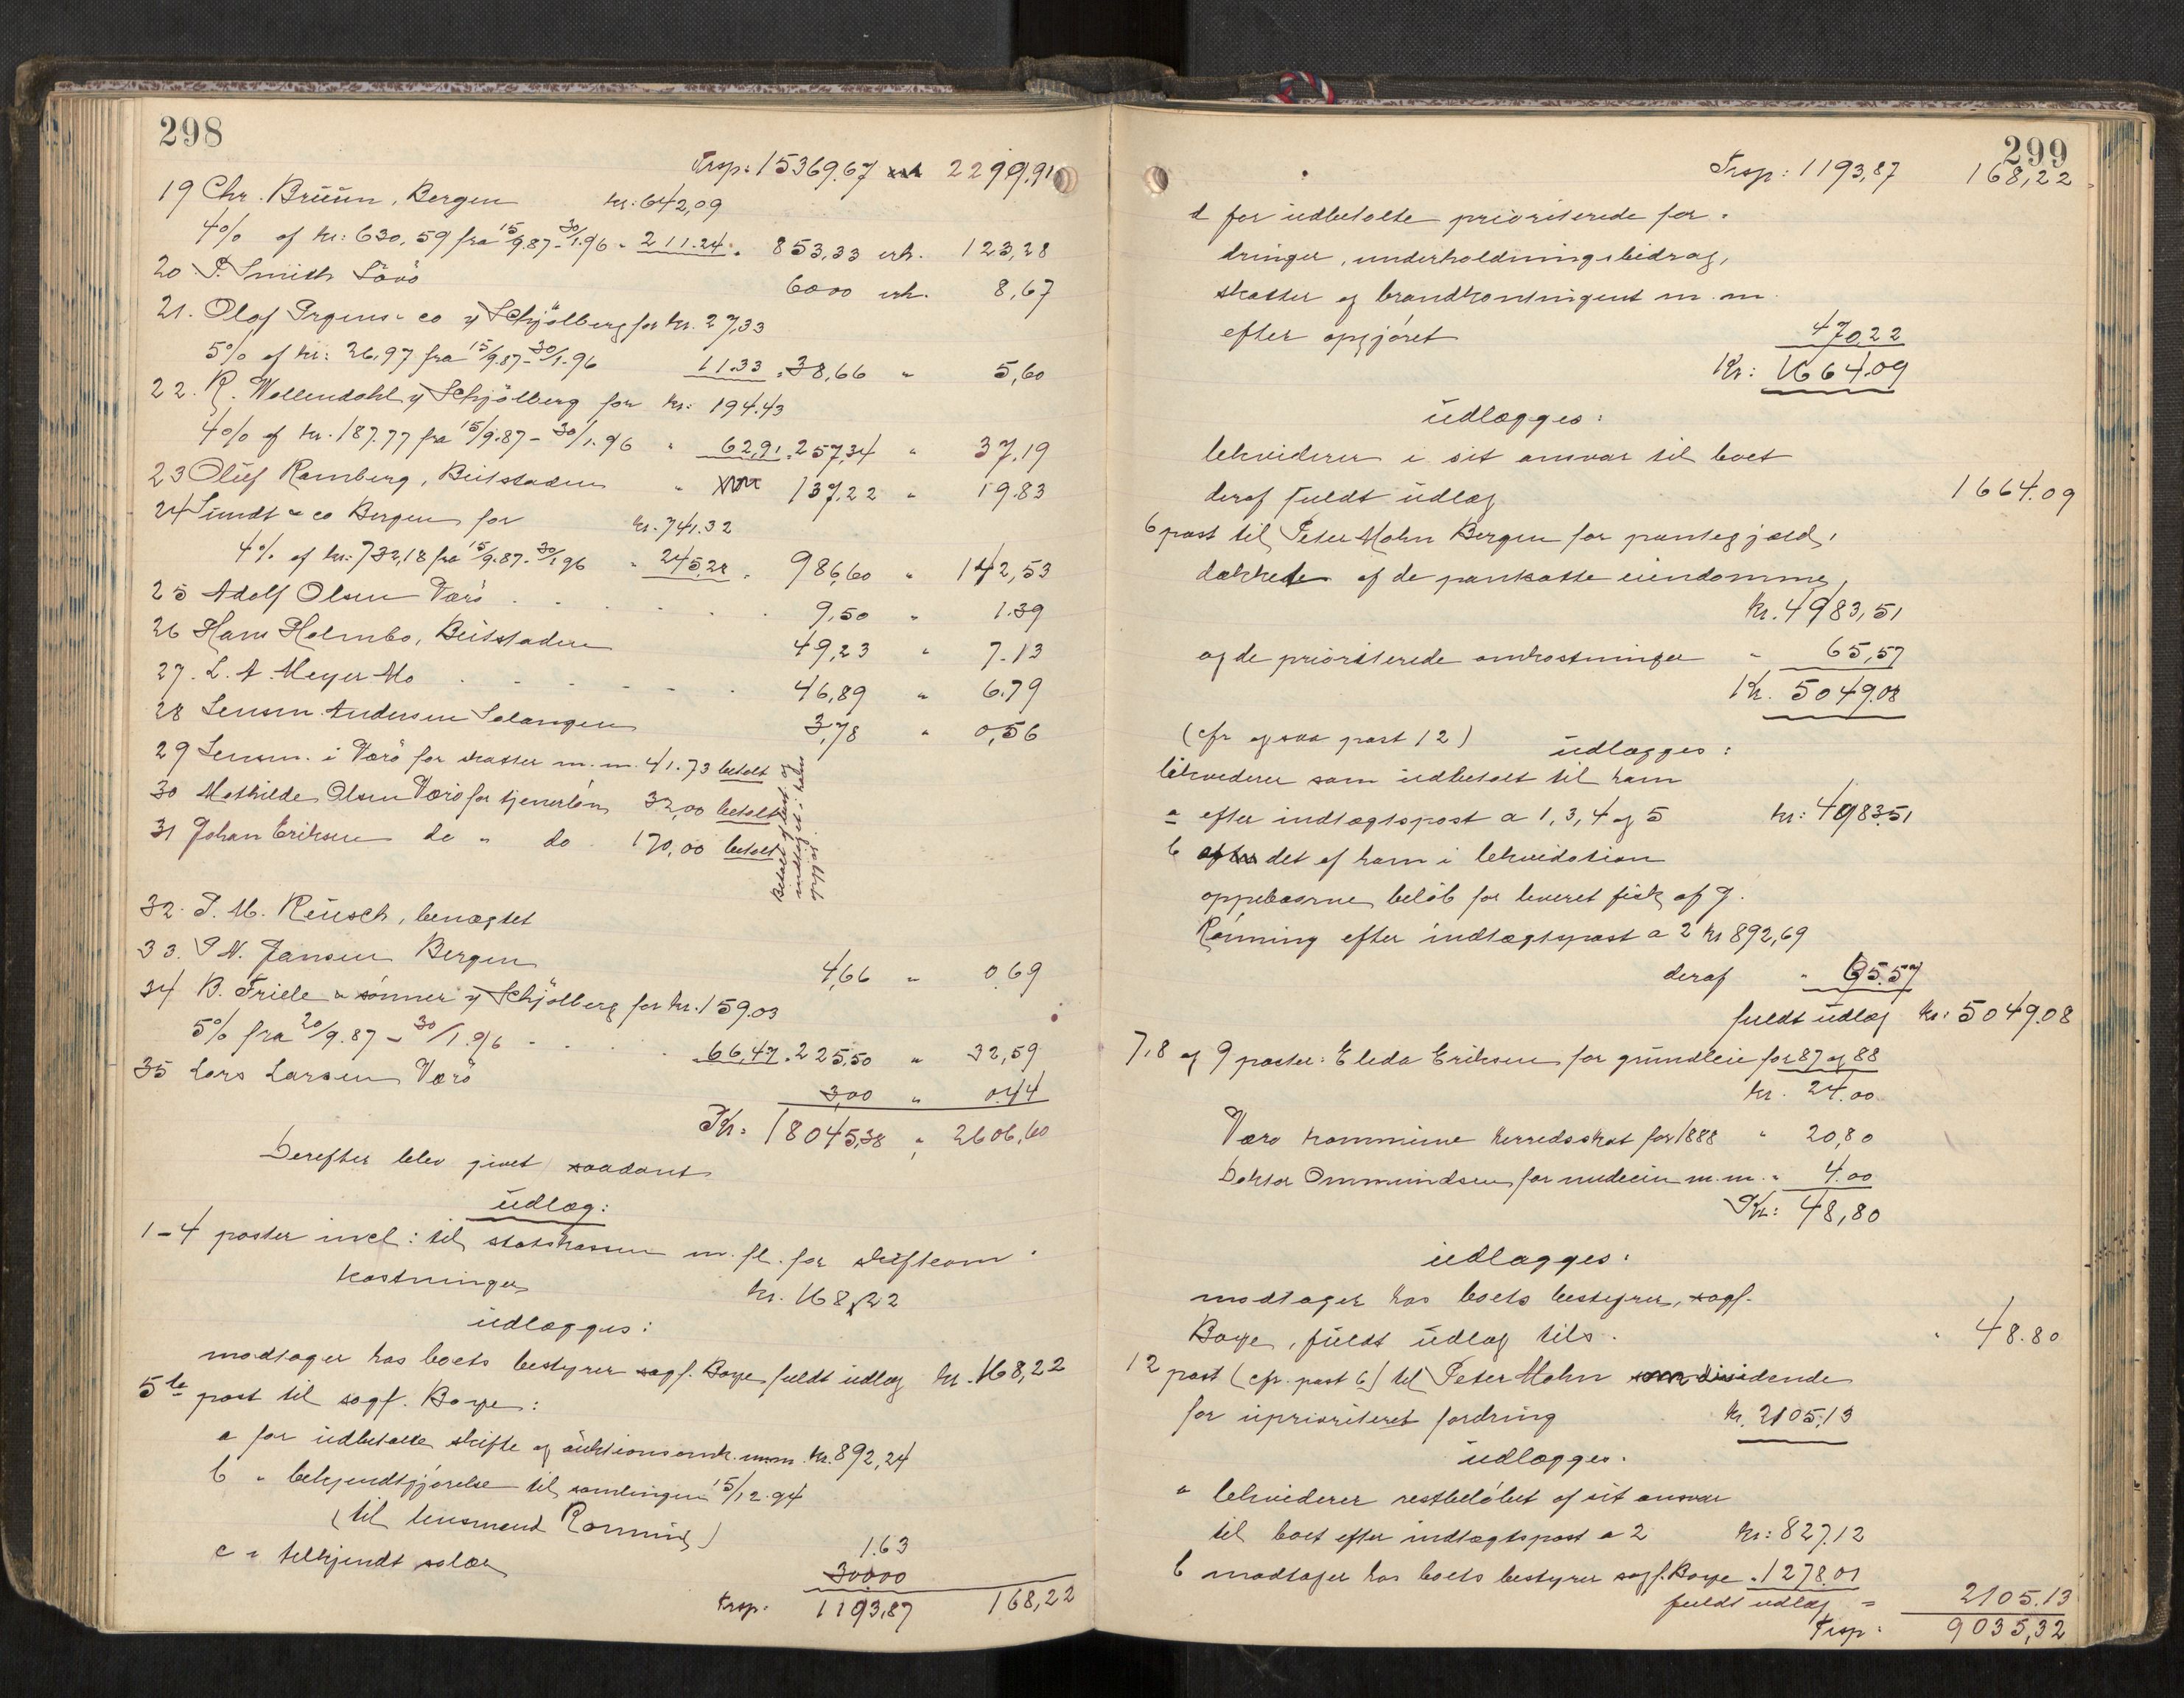 298
Trsp: 15369.67 erh. 2299.91
19 Chr. Bruun, Bergen kr: 642,09
4% af kr: 630,59 fra 15/9.87-30/1.96 - 211.24 . 853,33 erh. 123,28
20 P. Smith Sörö 60,00 erh. 8,67
21. Olaf Irgens & co v/ Schjölberg for kr. 27,33
5% af kr: 26,97 fra 15/9.87-30/1.96 11.33 . 38,66 " 5,60
22. R. Wollendahl v/ Schjölberg for kr: 194.43
4% af kr. 187.77 fra 15/9.87-30/1.96 " 62,91 . 257,34 " 37.19
23 Oluf Ramberg, Beitstaden " 137,22 " 19.83
24 Sundt & co Bergen for kr. 741.32
4% af kr: 732,18 fra 15/9.87-30/1.96 " 245,28 . 986,60 " 142,53
25 Adolf Olsen Værö 9,50 " 1.39
26 Hans Holmbo, Beitstaden 49,23 " 7.13
27. L. A. Meyer Mo 46,89 " 6.79
28 Lensm. Andersen Salangen 3,78 " 0,56
29 Lensm. i Værö for skatter m.m. 41.73 betalt
30 Mathilde Olsen Værö for tjenerlön 32,00 betalt
31 Johan Eriksen do " do 170,00 betalt
betalt af boet og indtaget i hans opgjör.
32. J. M. Reusch, benægtet
33. P N. Jansen Bergen 4,66 " 0.69
34 B. Friele & sönner v/ Schjölberg for kr. 159.03
5% fra 20/9.87-30/1.96 66,47 . 225,50 " 32,59
35 Lars Larsen Værö 3,00 " 0.44
Kr: 18045,38 " 2606,60
Derefter blev givet saadant
udlæg:
1-4 poster incl: til statskassen m. fl. for skifteom-
kostninger kr. 168,22
udlægges:
modtager hos boets bestyrer sagf. Boye fuldt udlæg kr. 168,22
5te post til sagf. Boye:
a for udbetalte skifte og auktionsomk. m.m. kr. 892,24
b " bekjendtgjörelse til samlingen 15/12.94
(til lensmand Rönning) 1.63
c " tilkjendt salær 300,00
Trsp: 1193,87 168,22
299
Trsp: 1193,87 168,22
d for udbetalte prioriterede for-
dringer, underholdningsbidrag,
skatter og brandkontingent m.m.
efter opgjöret 470,22
Kr: 1664.09
udlægges:
lekviderer i sit ansvar til boet
deraf fuldt udlæg 1664.09
6 post til Peter Mohn Bergen for pantegjæld,
dækkede af de pantsatte eiendomme,
kr. 4983,51
og de prioriterede omkostninger " 65,57
Kr. 5049.08
(cfr ogsaa post 12) udlægges:
likviderer som udbetalt til ham
a efter indtægtspost a 1, 3, 4 og 5 kr: 4983.51
b det af ham i lekvidation
oppebaarne belöb for leveret fisk af J.
Rönning efter indtægtspost a 2 kr 892,69
deraf " 65.57
fuldt udlæg kr: 5049.08
7, 8 og 9 poster: Eleda Eriksen for grundleie for 87 og 88
kr. 24.00
Værö kommune herredsskat for 1888 " 20,80
Doktor Ommundsen for medicin m.m. " 4.00
Kr: 48,80
udlægges:
modtager hos boets bestyrer, sagf.
Boye, fuldt udlæg tils. " 48.80
12 post (cfr. post 6) til Peter Mohn som dividende
for uprioriteret fordring kr. 2105.13
udlægges.
a lekviderer restbelöbet af sit ansvar
til boet efter indtægtspost a 2 kr: 827.12
b modtager hos boets bestyrer sagf. Boye " 1278.01
fuldt udlæg = 2105.13
Trsp: 9035,32